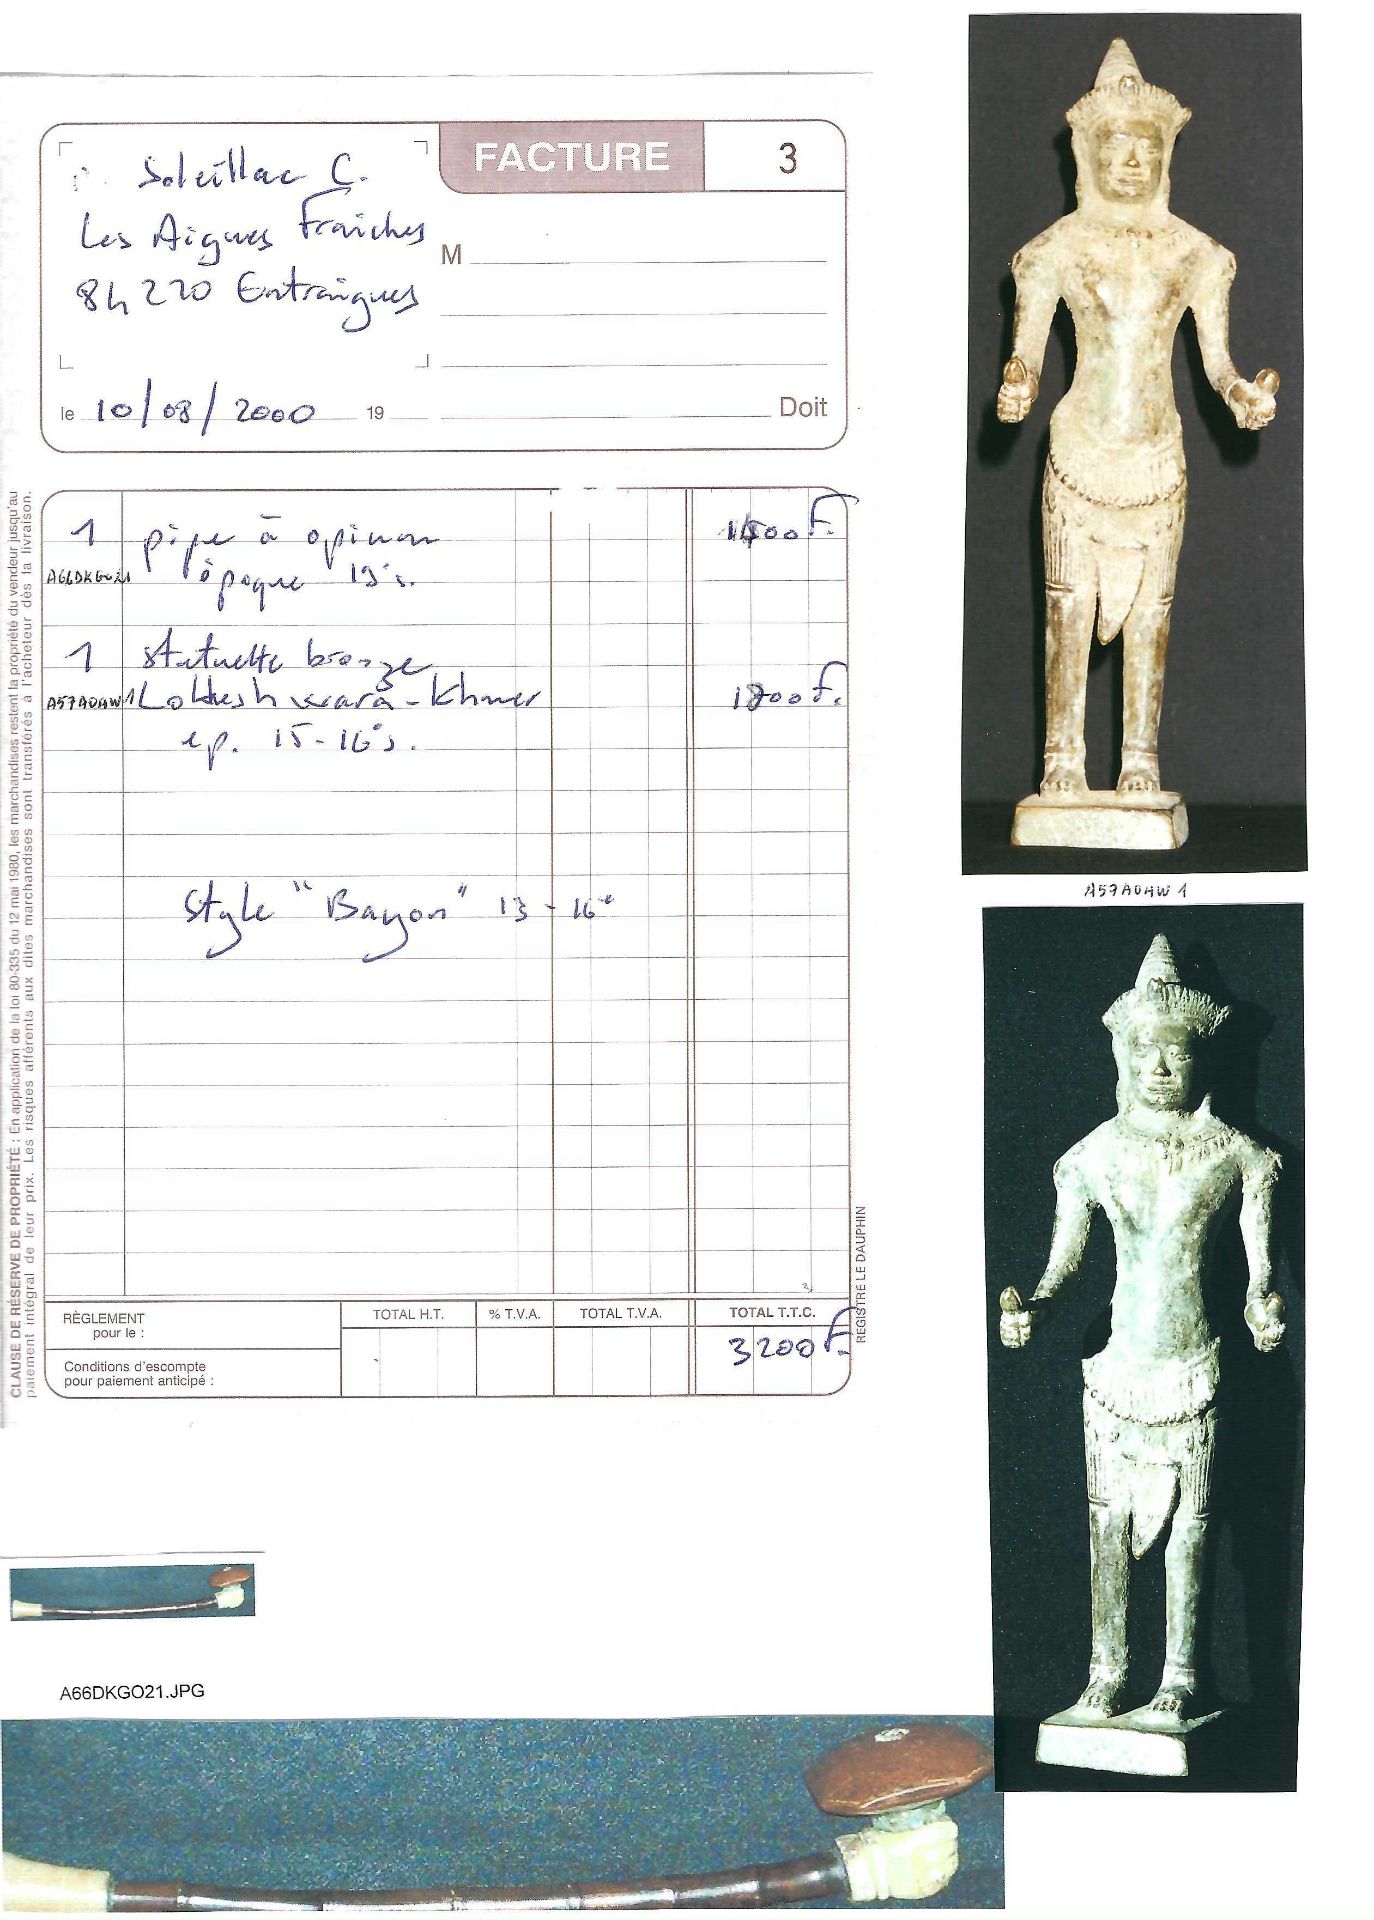 Soleillac C.
Les Aigues Fraîches
84 220 Entraigues
FACTURE
3
M
le 10/08/2000 19
Doit
1 pipe à opium 1400 F.
A66DKGO21 époque 19e s.
1 statuette bronze
A57AOAW1 Lokeshwara - Khmer 1800 F.
ep. 15-16e s.
Style "Bayon" 13-16e
RÈGLEMENT
pour le :
Conditions d'escompte
pour paiement anticipé :
TOTAL H.T.
% T.V.A.
TOTAL T.V.A.
TOTAL T.T.C.
3200 F.
CLAUSE DE RÉSERVE DE PROPRIÉTÉ : En application de la loi 80-335 du 12 mai 1980, les marchandises restent la propriété du vendeur jusqu'au
paiement intégral de leur prix. Les risques afférents aux dites marchandises sont transférés à l'acheteur dès la livraison.
REGISTRE LE DAUPHIN
A57AOAW1
A66DKGO21.JPG